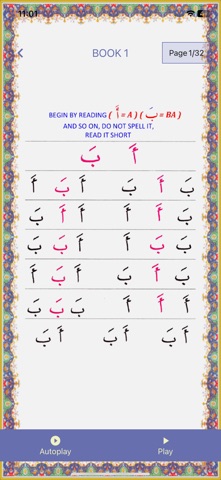 11:01
BOOK 1
Page 1/32
BEGIN BY READING ( أَ = A ) ( بَ = BA )
AND SO ON, DO NOT SPELL IT,
READ IT SHORT
أَ بَ
بَ أَ بَ أَ بَ أَ
بَ أَ أَ أَ أَ بَ
بَ بَ أَ أَ بَ بَ
بَ أَ بَ أَ بَ أَ
أَ أَ أَ بَ بَ بَ
أَ بَ أَ بَ أَ بَ
Autoplay
Play